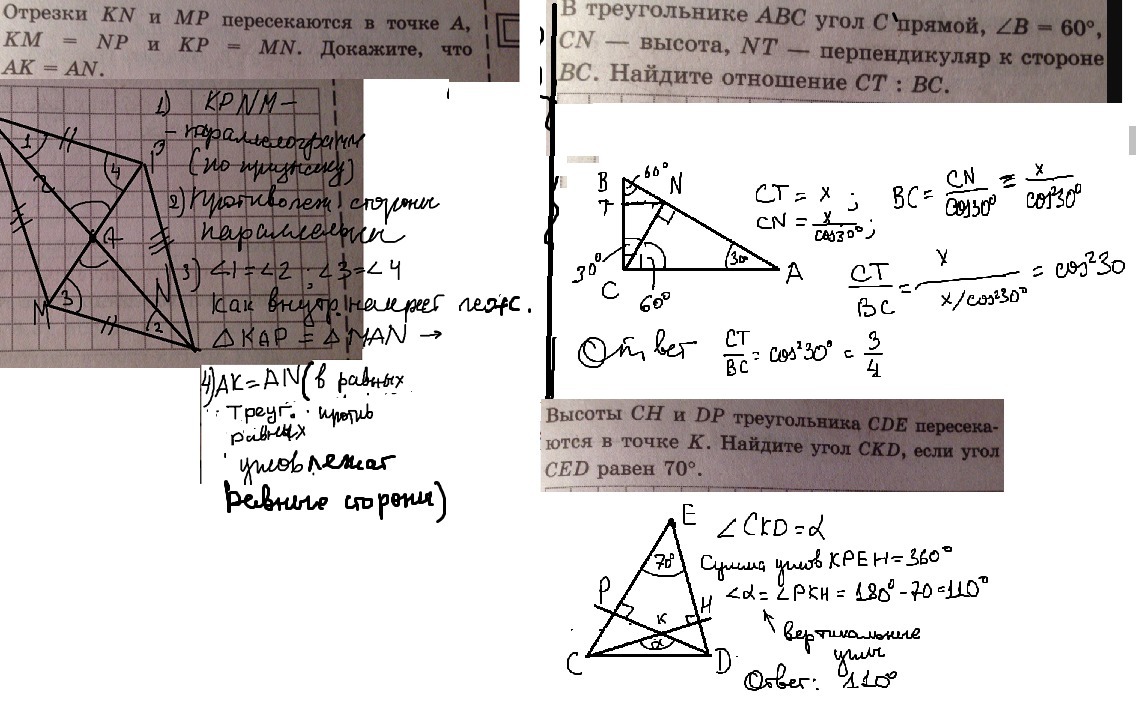 Отрезки KN и MP пересекаются в точке A,
KM = NP и KP = MN. Докажите, что
AK = AN.
1) KPNM –
– параллелограмм
(по признаку)
2) Противолеж. стороны
параллельны
3) ∠1=∠2 ; ∠3=∠4
как внутр. накрест лежс.
△KAP = △MAN →
4) AK = AN (в равных
треуг. против
равных
углов лежат
равные стороны)
1
2
4
P
A
M
3
N
2
В треугольнике ABC угол C прямой, ∠B = 60°,
CN — высота, NT — перпендикуляр к стороне
BC. Найдите отношение CT : BC.
B
60°
N
T
30°
C
60°
30
A
CT = x ; BC = CN/cos30° = x/cos²30°
CN = x/cos30° ;
CT/BC = x/(x/cos²30°) = cos²30
Ответ CT/BC = cos²30° = 3/4
Высоты CH и DP треугольника CDE пересека-
ются в точке K. Найдите угол CKD, если угол
CED равен 70°.
E
70°
P
H
K
α
C
D
∠CKD = α
Сумма углов KPEH = 360°
∠α = ∠PKH = 180° - 70 = 110°
вертикальные
углы
Ответ: 110°